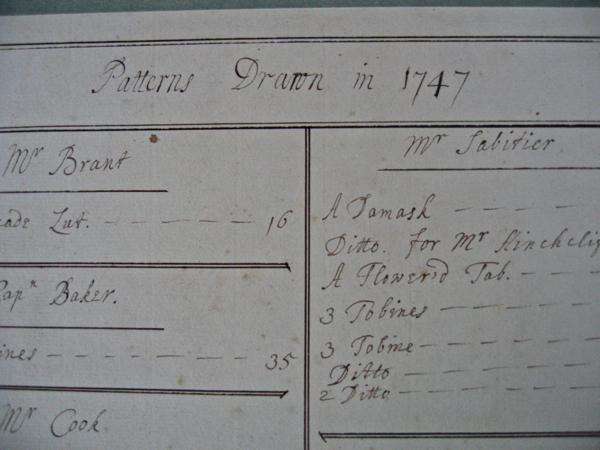 Patterns Drawn in 1747
Mr Brant
cade Lut. 16
Capn Baker.
ines 35
Mr Cook
Mr Sabitier
A Damask
Ditto. for Mr Hinchclif
A Flowered Tab.
3 Tobines
3 Tobine
Ditto
2 Ditto